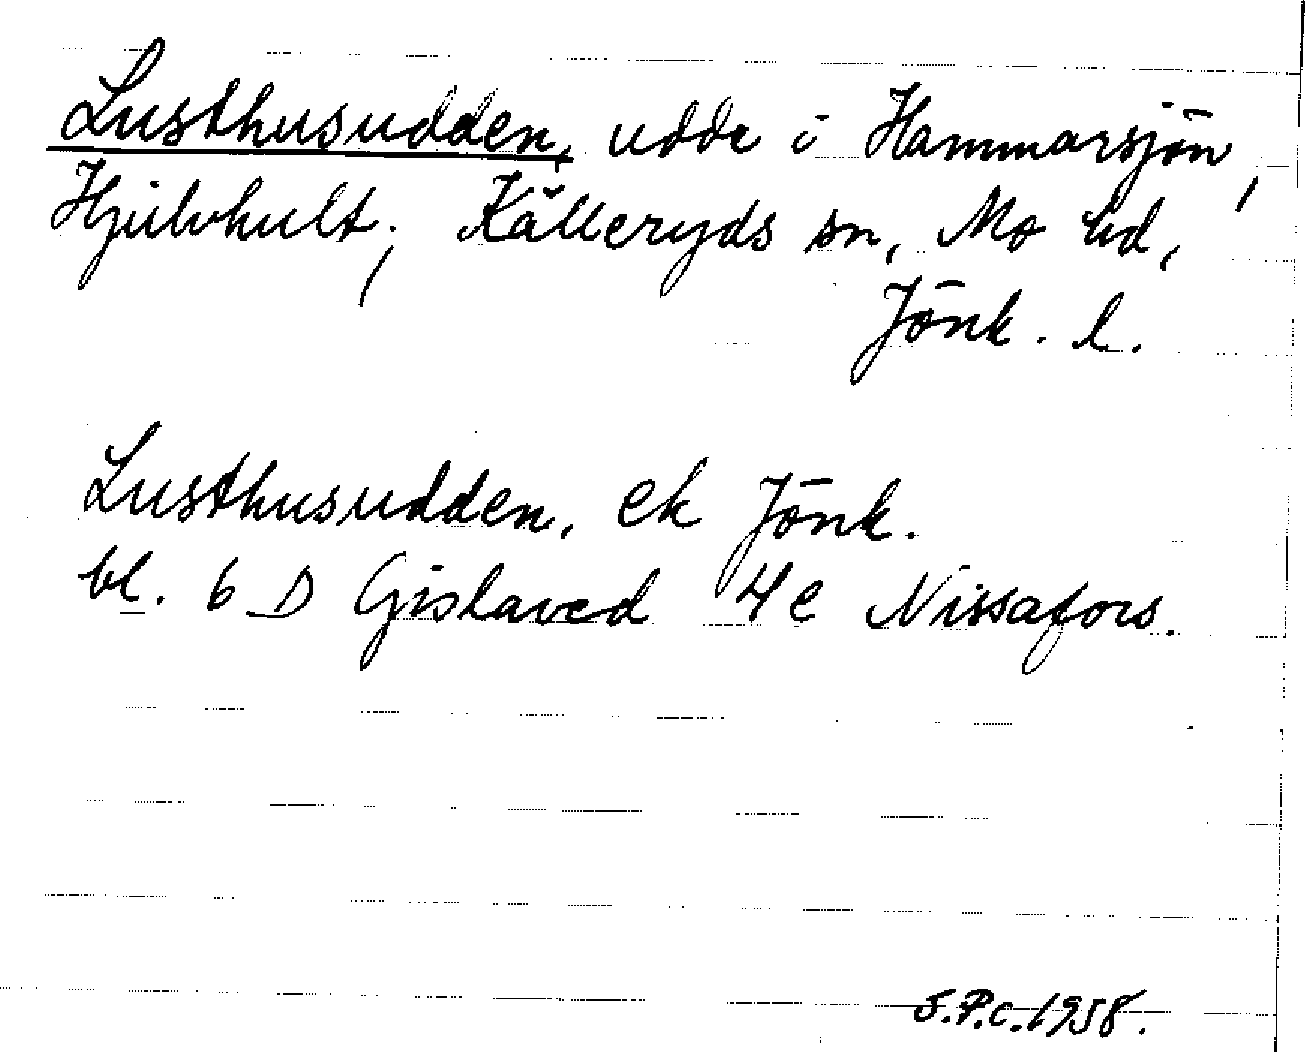 Lusthusudden, udde i Hammarsjön,
Hjulvhult, Källeryds sn, Mo hd,
Jönk. l.
Lusthusudden, ek Jönk.
bl. 6 D Gislaved 4 e Nissafors.
S.P.C. 1958.